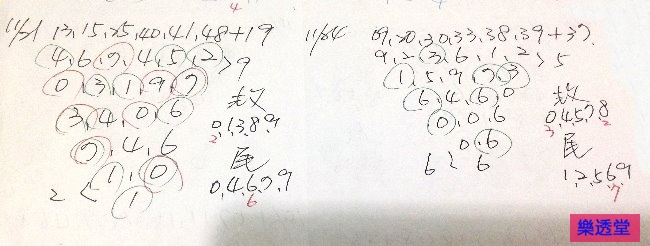 11/21 13, 15, 25, 40, 41, 48 + 19
4, 6, 7, 4, 5, 2 > 9
0, 3, 1, 9, 7
3, 4, 0, 6
7, 4, 6
2 < 1, 0
1
0, 1, 3, 8, 9
2
尾
0, 4, 6, 7, 9
6
4
11/24 09, 20, 30, 33, 38, 39 + 37
9, 2, 3, 6, 1, 2 > 5
1, 5, 9, 7, 3
6, 4, 6, 0
0, 0, 6
0, 6
6 < 6
0, 4, 5, 7, 8
3 2
尾
1, 2, 5, 6, 9
7
樂透堂